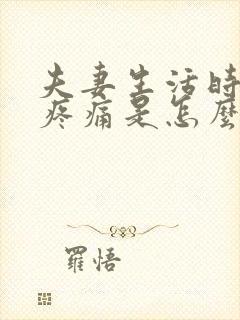 夫妻生活時
疼痛是怎麼
羅悟